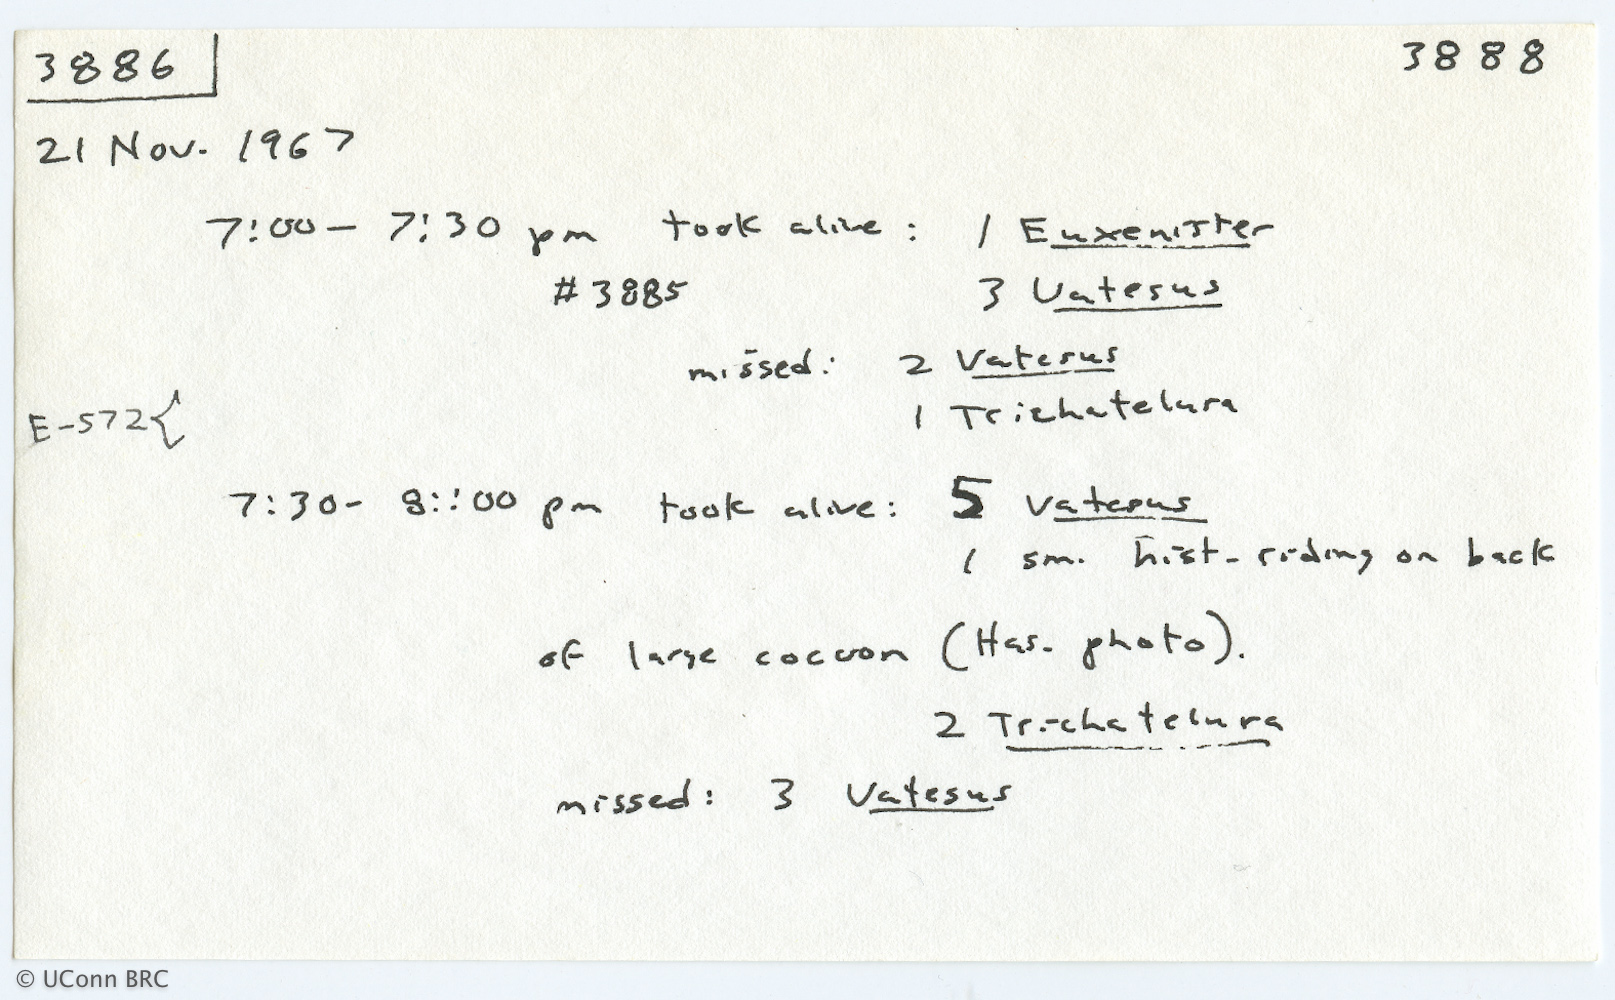 3886 3888
21 Nov. 1967
7:00 - 7:30 pm took alive: 1 Euxenister
#3885 3 Vatesus
missed: 2 Vatesus
1 Trichatelura
E-572{
7:30 - 8:00 pm took alive: 5 Vatesus
1 sm. hist. riding on back
of large cocoon (Has. photo).
2 Trichatelura
missed: 3 Vatesus
© UConn BRC